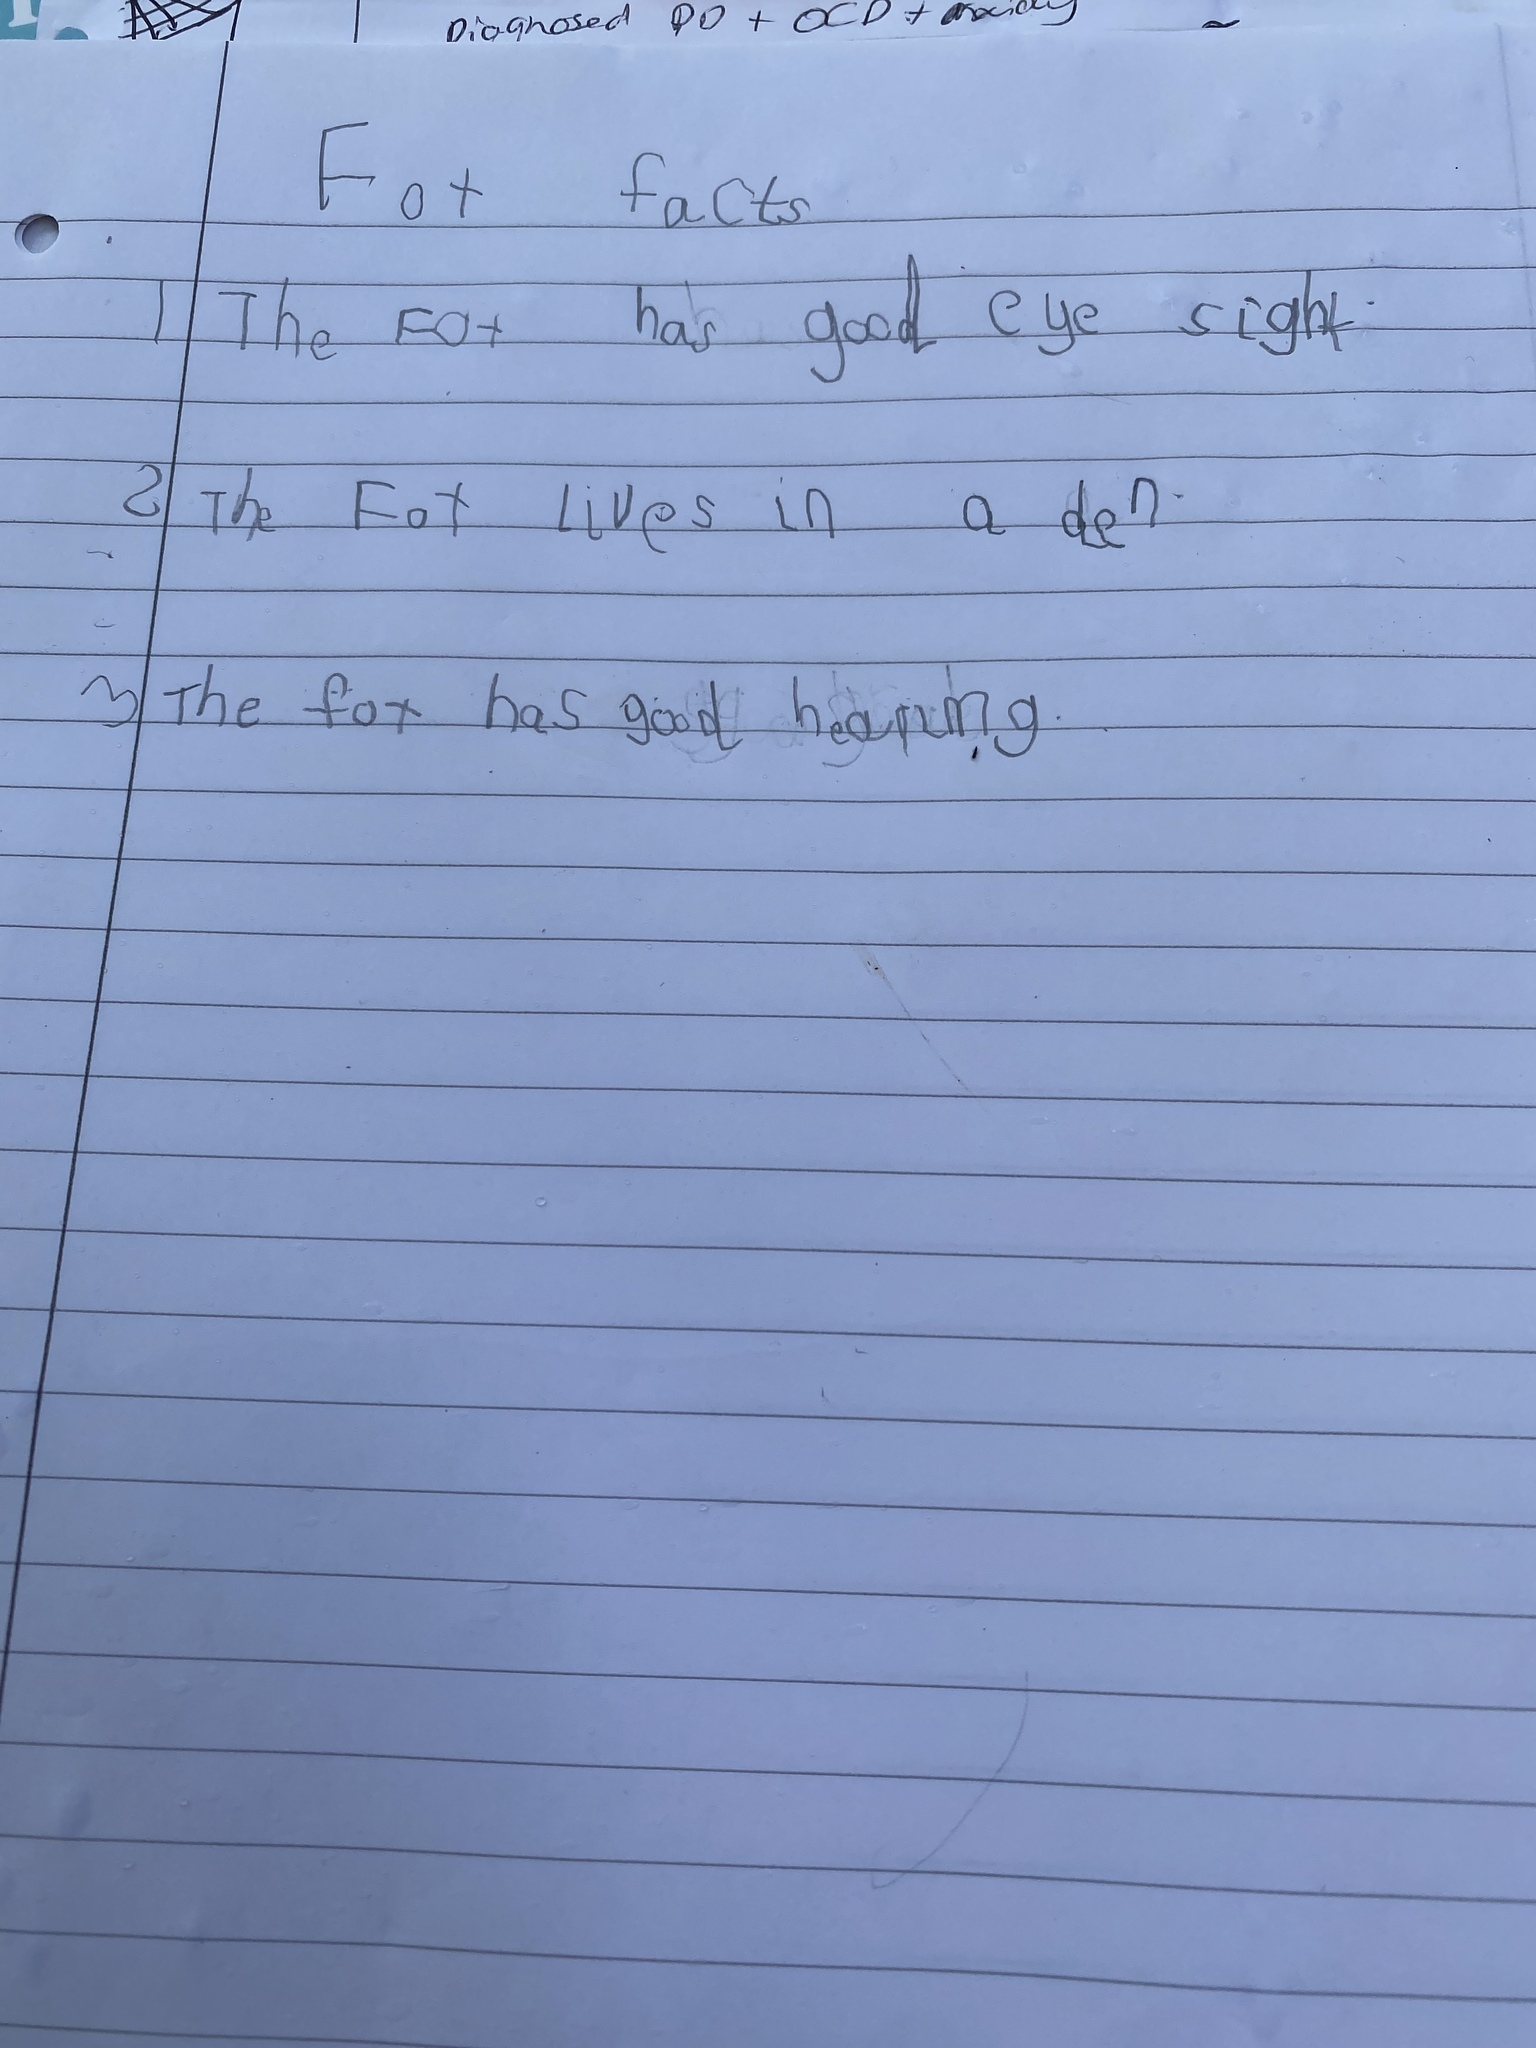 Diagnosed PD + OCD + anxiety
Fox facts
1 The Fox has good eye sight.
2 The Fox Lives in a den.
3 The fox has good hearing.